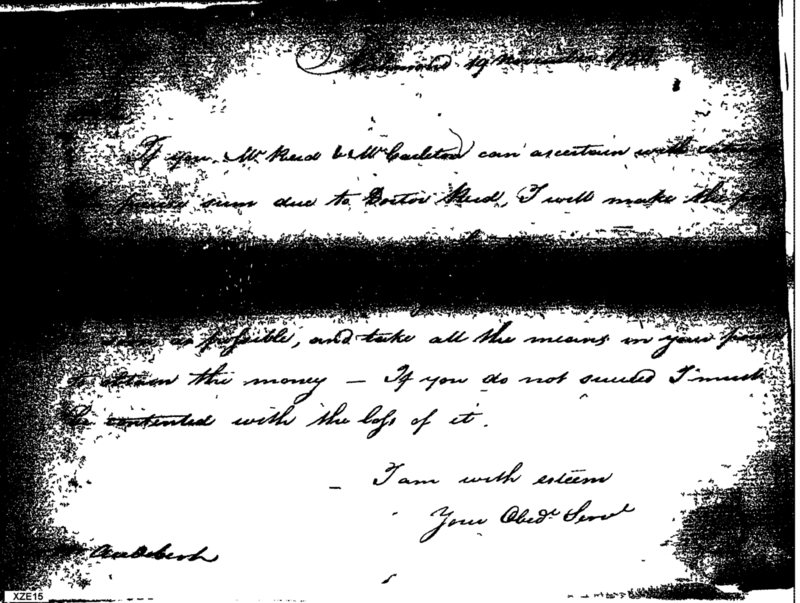 19 November
If you, Mr. Reid & Mr. Carleton can ascertain with
sum due to Doctor Reid, I will make the
soon as possible, and take all the means in your power
to obtain the money — If you do not succeed I must
be contented with the loss of it.
I am with esteem
Your Obedt. Servt
XZE15